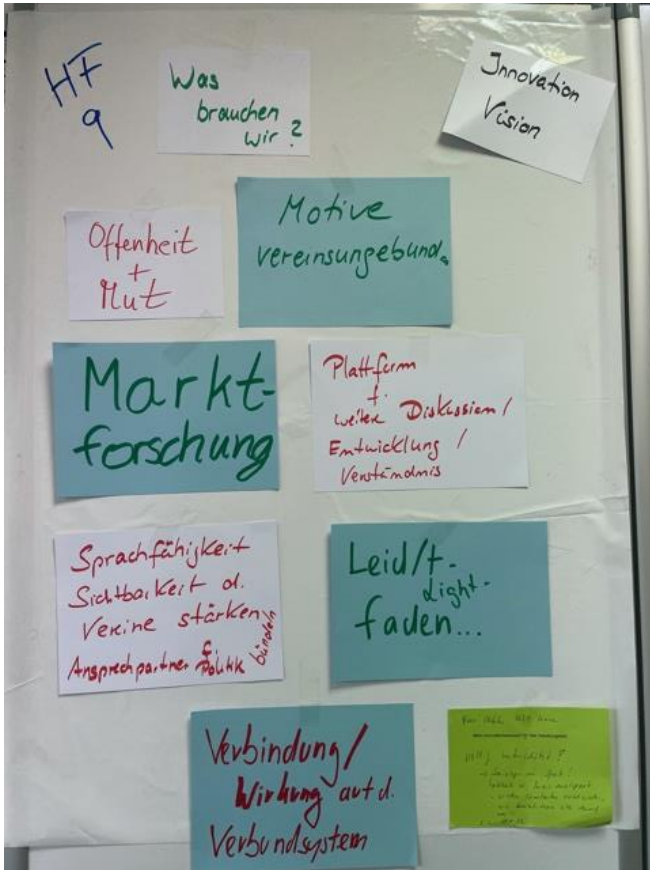 HF
9
Was
brauchen
wir?
Innovation
Vision
Offenheit
+
Mut
Motive
vereinsungebund.
Markt-
forschung
Plattform
f.
weitere Diskussion/
Entwicklung /
Verständnis
Sprachfähigkeit
Sichtbarkeit d.
Vereine stärken
bündeln
Ansprechpartner f. Politik
Leid/t-
Light-
faden...
Verbindung/
Wirkung auf d.
Verbundsystem